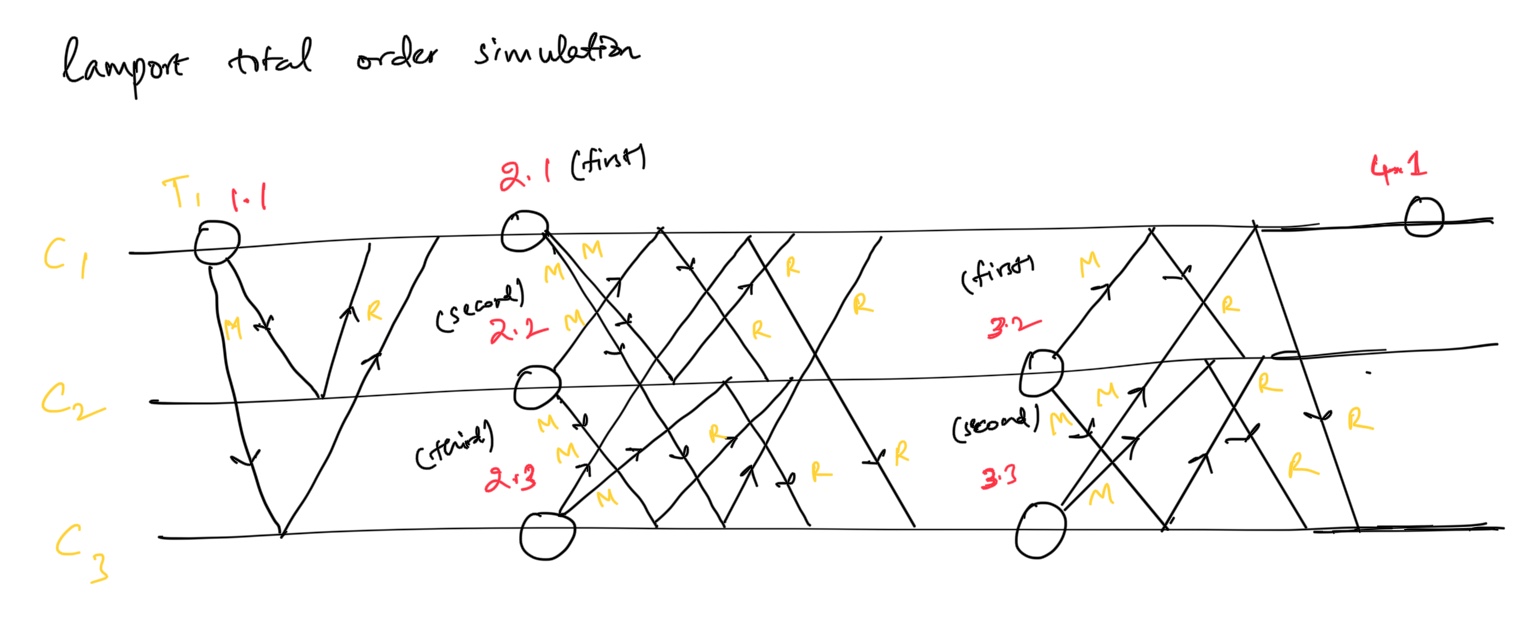 lamport total order simulation
T1 1.1
2.1 (first)
4.1
C1
M
R
M
M
(second)
2.2
M
R
R
R
(first)
3.2
M
R
C2
(third)
2.3
M
M
M
R
R
R
(second)
3.3
M
M
M
R
R
R
C3